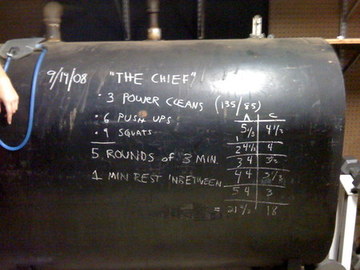 9/17/08 "THE CHIEF"
• 3 POWER CLEANS (135/85)
• 6 PUSH UPS
• 9 SQUATS
5 ROUNDS OF 3 MIN.
1 MIN REST INBETWEEN
A C
5 1/3 4 1/3
2 4 2/3 4
3 4
4 4
5 4 3
= 21 18